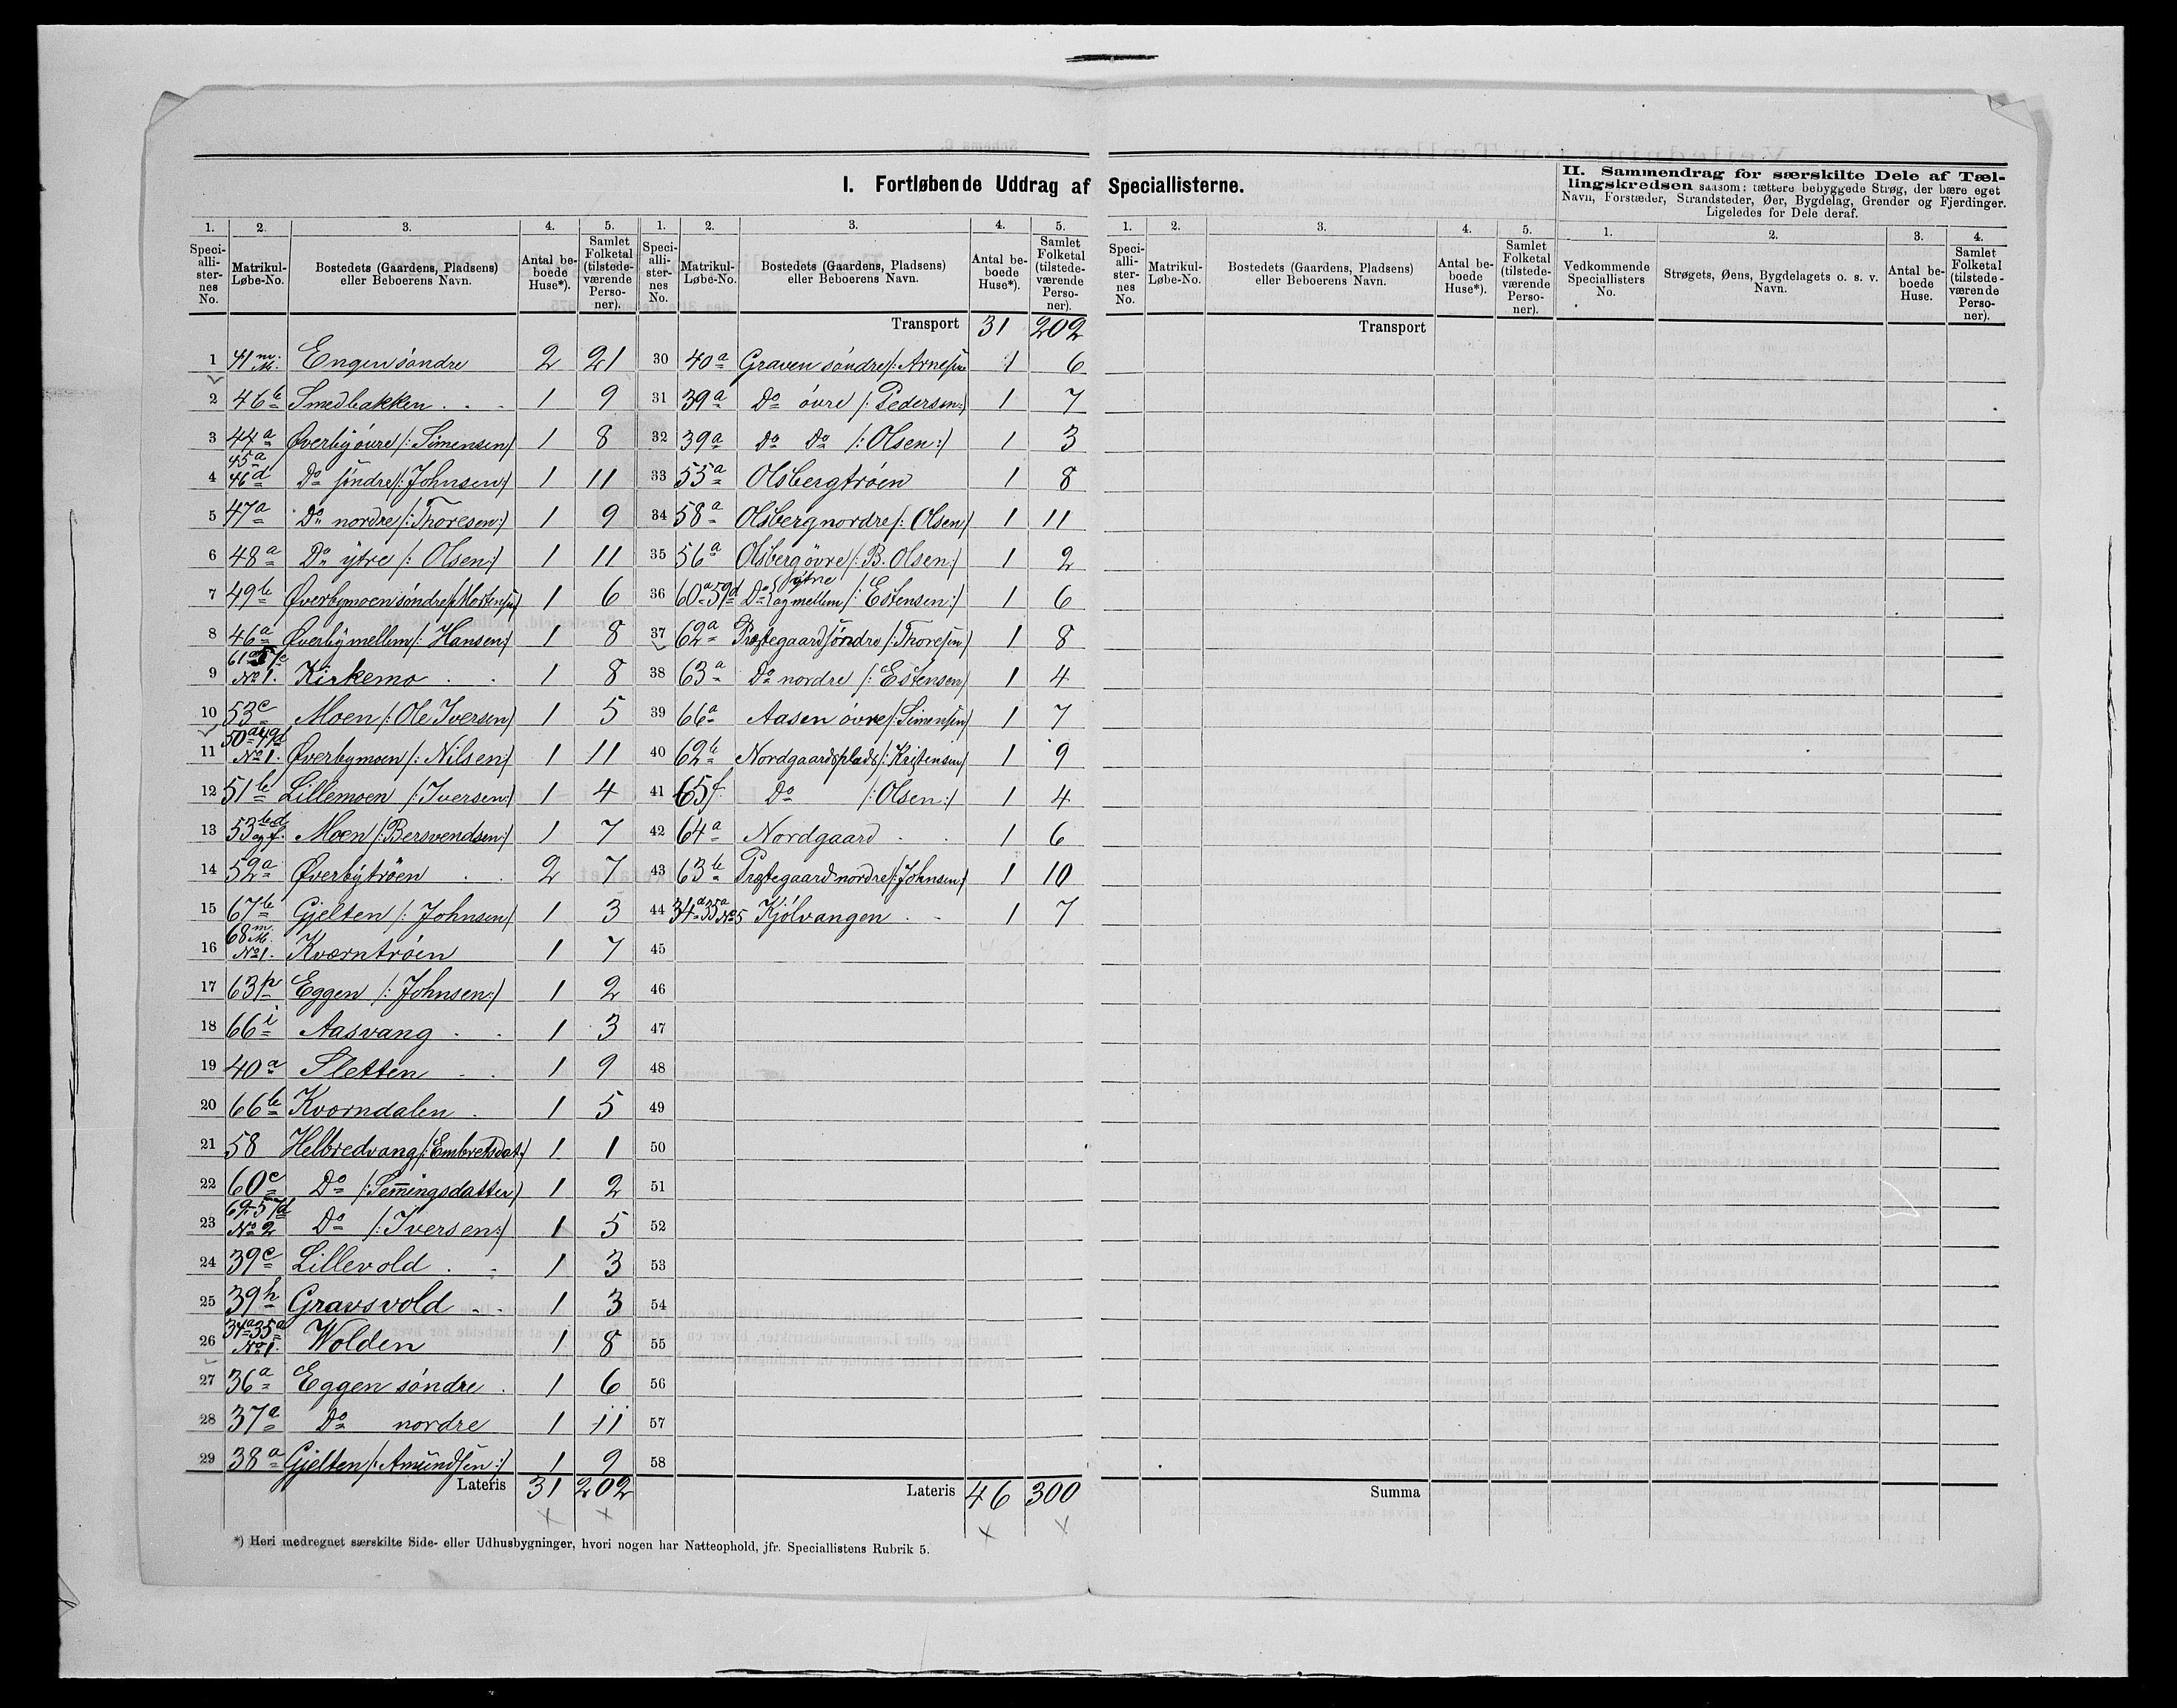 I. Fortløbende Uddrag af Speciallisterne.
II. Sammendrag for særskilte Dele af Tællingskredsen saasom: tættere bebyggede Strøg, der bære eget
Navn, Forstæder, Strandsteder, Øer, Bygdelag, Grender og Fjerdinger.
Ligeledes for Dele deraf.
1. 2. 3. 4. 5. 1. 2. 3. 4. 5. 1. 2. 3. 4. 5. 1. 2. 3. 4.
Speciallisternes No. Matrikul-Løbe-No. Bostedets (Gaardens, Pladsens) eller Beboerens Navn. Antal beboede Huse*). Samlet Folketal (tilstedeværende Personer).
Speciallisternes No. Matrikul-Løbe-No. Bostedets (Gaardens, Pladsens) eller Beboerens Navn. Antal beboede Huse*). Samlet Folketal (tilstedeværende Personer).
Speciallisternes No. Matrikul-Løbe-No. Bostedets (Gaardens, Pladsens) eller Beboerens Navn. Antal beboede Huse*). Samlet Folketal (tilstedeværende Personer).
Vedkommende Speciallisters No. Strøgets, Øens, Bygdelagets o. s. v. Navn. Antal beboede Huse. Samlet Folketal (tilstedeværende Personer).
1 41 m. Engen søndre 2 21
2 46b Smedbakken 1 9
3 44a Øverby øvre /: Simensen/ 1 8
4 45a 46d Do søndre /: Johnsen/ 1 11
5 47a Do nordre /: Thoresen:/ 1 9
6 48a Do ytre /: Olsen:/ 1 11
7 49b Øverbymoen søndre /: Mortensen/ 1 6
8 46a Øverby mellem /: Hansen:/ 1 8
9 No 1. Kirkemo 1 8
10 53c Moen /: Ole Iversen/ 1 5
11 50a 49d No 1. Øverbymoen /: Nilsen:/ 1 11
12 51b Lillemoen /: Iversen:/ 1 4
13 53b d og f. Moen /: Bersvendsen:/ 1 7
14 52a Øverbytrøen 2 7
15 67b Gjelten /: Johnsen/ 1 3
16 68 m. No 1. Kværntrøen 1 7
17 63p Eggen /: Johnsen:/ 1 2
18 66i Aasvang 1 3
19 40a Sletten 1 9
20 66b Kværndalen 1 5
21 58 Helbredvang /: Embretsdat:/ 1 1
22 60c Do /: Semingsdatter/ 1 2
23 No 2 Do /: Iversen:/ 1 5
24 39c Lillevold 1 3
25 39h Gravsvold 1 3
26 34a 35a No 1. Wolden 1 8
27 36a Eggen søndre 1 6
28 37a Do nordre 1 11
29 38a Gjelten /: Amundsen:/ 1 9
Lateris 31 202
Transport 31 202
30 40a Graven søndre /: Arnesen 1 6
31 39a Do øvre /: Pedersen:/ 1 7
32 39a Do Do /: Olsen:/ 1 3
33 55a Olsbergtrøen 1 8
34 58a Olsberg nordre /: Olsen/ 1 11
35 56a Olsberg øvre /: B. Olsen:/ 1 2
36 60a 59d Do ytre og mellem /: Estensen:/ 1 6
37 62a Præstegaard søndre /: Thoresen/ 1 8
38 63a Do nordre /: Estensen/ 1 4
39 66a Aasen øvre /: Simensen/ 1 7
40 62b Nordgaardsplads /: Kristensen/ 1 9
41 65f. Do /: Olsen:/ 1 4
42 64a Nordgaard 1 6
43 63b Præstegaard nordre /: Johnsen:/ 1 10
44 34a 35a No 5 Kjølvangen 1 7
45
46
47
48
49
50
51
52
53
54
55
56
57
58
Lateris 46 300
Transport
Summa
*) Heri medregnet særskilte Side- eller Udhusbygninger, hvori nogen har Natteophold, jfr. Speciallistens Rubrik 5.